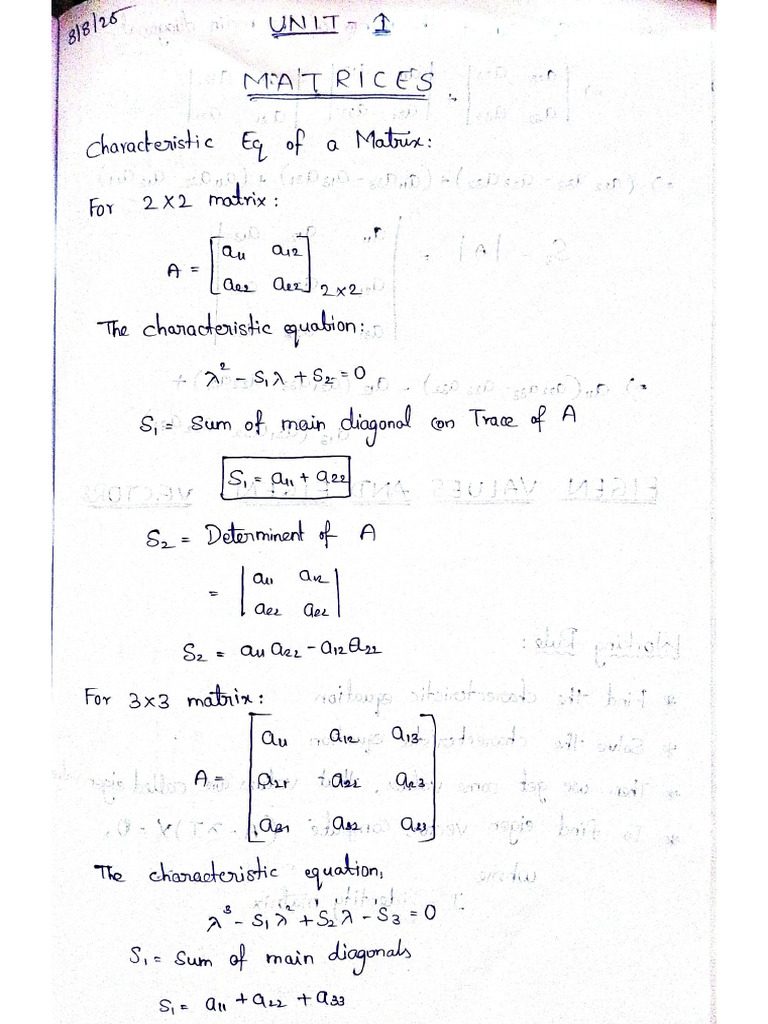 8/8/25
UNIT - 1
MATRICES
Characteristic Eq of a Matrix:
For 2×2 matrix:
A = [a11 a12
a22 a22] 2×2
The characteristic equation:
λ² - S₁λ + S₂ = 0
S₁ = Sum of main diagonal (or) Trace of A
S₁ = a11 + a22
S₂ = Determinent of A
= |a11 a12
a22 a22|
S₂ = a11 a22 - a12 a22
For 3×3 matrix:
A = [a11 a12 a13
a21 a22 a23
a31 a32 a33]
The characteristic equation,
λ³ - S₁λ² + S₂λ - S₃ = 0
S₁ = Sum of main diagonals
S₁ = a11 + a22 + a33